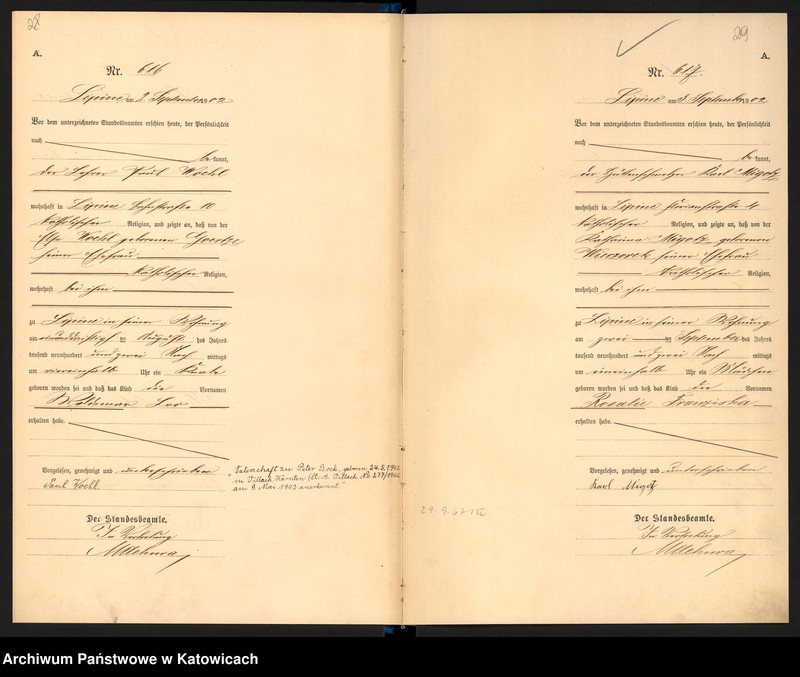 28
A.
Nr. 616
Lipine am 2. September 1902
Vor dem unterzeichneten Standesbeamten erschien heute, der Persönlichkeit
nach
bekannt,
der Lehrer Paul Woehl
wohnhaft in Lipine 10
katholischer Religion, und zeigte an, daß von der
Else Woehl geborenen
seiner Ehefrau
katholischer Religion,
wohnhaft bei ihm
zu Lipine in seiner Wohnung
am einunddreißigsten August des Jahres
tausend neunhundert und zwei Nachmittags
um Uhr ein Knabe
geboren worden sei und daß das Kind die Vornamen
Waldemar Leo
erhalten habe.
Vorgelesen, genehmigt und unterschrieben
Paul Woehl.
Der Standesbeamte.
In Vertretung
"Vaterschaft zu Peter Bock, geboren 24.5.1942
in Villach, Kärnten (St. A. Villach Nr. 277/1942)
am 8. Mai 1943 anerkannt."
29
A.
Nr. 617.
Lipine am 3. September 1902
Vor dem unterzeichneten Standesbeamten erschien heute, der Persönlichkeit
nach
bekannt,
der Karl
wohnhaft in Lipine Florianstraße 4
katholischer Religion, und zeigte an, daß von der
Katharina geborenen
Wieczorek seiner Ehefrau
katholischer Religion,
wohnhaft bei ihm
zu Lipine in seiner Wohnung
am zwei ten September des Jahres
tausend neunhundert und zwei Nachmittags
um Uhr ein Mädchen
geboren worden sei und daß das Kind die Vornamen
Rosalie Franziska
erhalten habe.
Vorgelesen, genehmigt und unterschrieben
Karl
Der Standesbeamte.
In Vertretung
Archiwum Państwowe w Katowicach